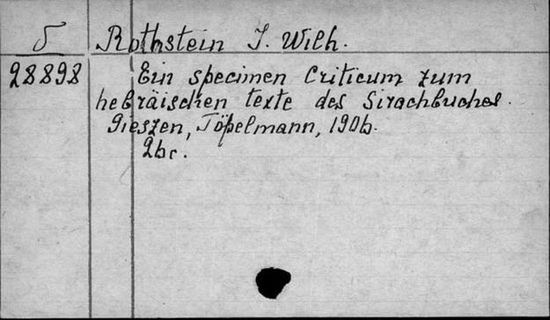 δ Rothstein J. Wilh.
28898 Ein specimen Criticum zum
hebräischen texte des Sirachbuches.
Gieszen, Töpelmann, 1906.
2br.